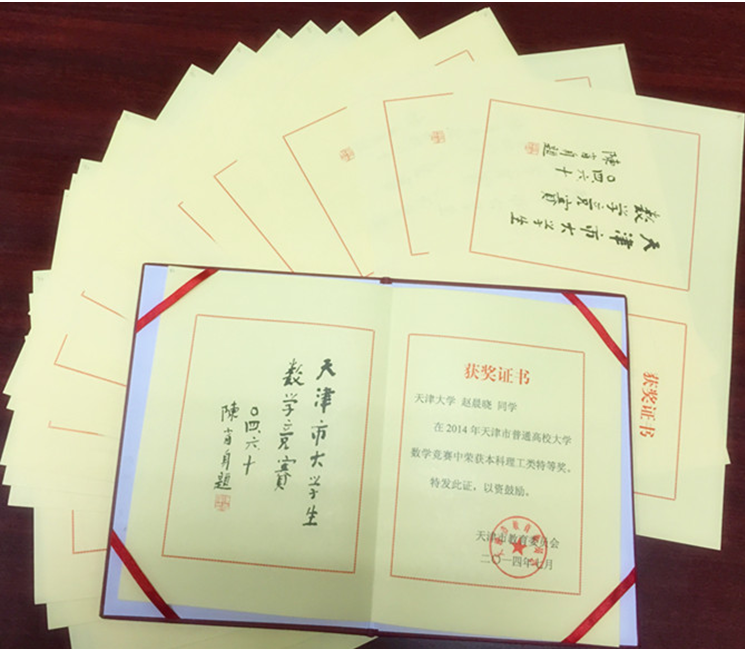 天津市大学生
数学竞賽
〇四六十
陳省身題
获奖证书
天津大学 赵晨晓 同学
在 2014 年天津市普通高校大学
数学竞赛中荣获本科理工类特等奖。
特发此证，以资鼓励。
天津市教育委员会
二〇一四年七月
天津市大学生
数学竞賽
〇四六十
陳省身題
获奖证书